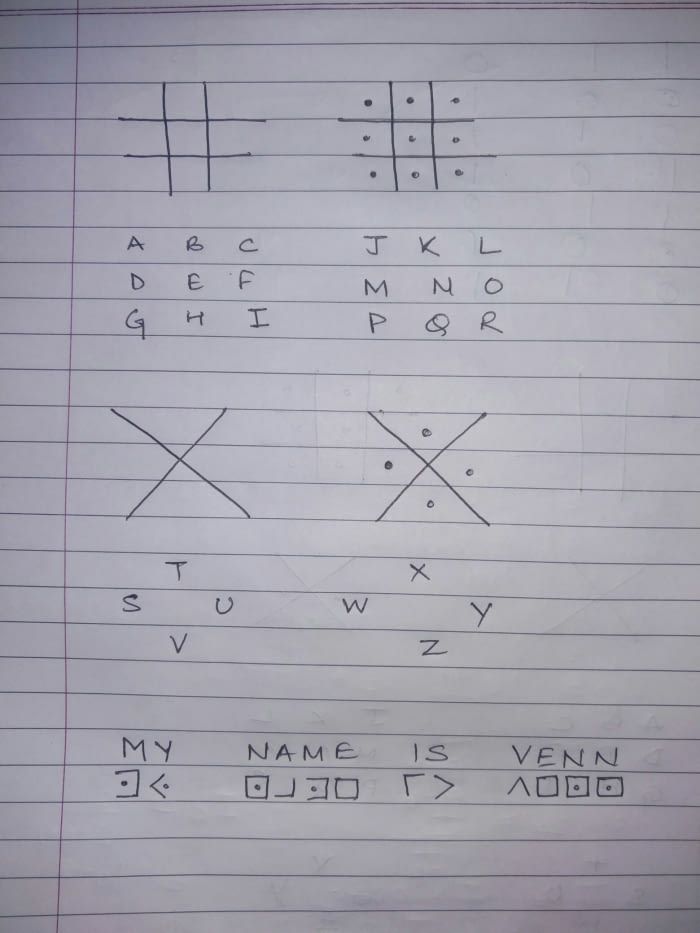 A B C J K L
D E F M N O
G H I P Q R
T X
S U W Y
V Z
MY NAME IS VENN